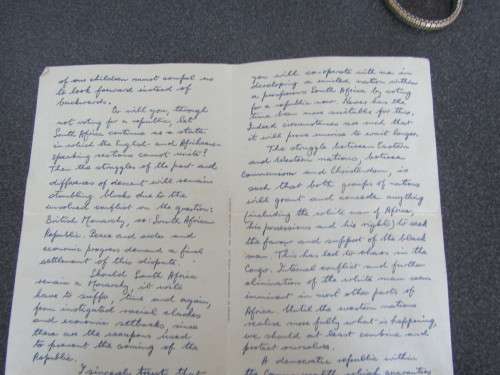 of our children must compel us
to look forward instead of
backwards.
Or will you, through
not voting for a republic, let
South Africa continue as a state
in which the English- and Afrikaans-
speaking sections cannot unite?
Then the struggles of the past and
differences of descent will remain
stumbling blocks due to the
unsolved conflict on the question:
British Monarchy, or: South African
Republic. Peace and order and
economic progress demand a final
settlement of this dispute.
Should South Africa
remain a Monarchy, it will
have to suffer, time and again,
from instigated racial clashes
and economic setbacks, since
these are the weapons used
to prevent the coming of the
Republic.
I sincerely trust that
you will co-operate with me in
developing a united nation within
a prosperous South Africa by voting
for a republic now. Never has the
time been more suitable for this.
Indeed circumstances are such that
it will prove unwise to wait longer.
The struggle between Eastern
and Western nations, between
Communism and Christendom, is
such that both groups of nations
will grant and concede anything
(including the white man of Africa,
his possessions and his rights) to seek
the favour and support of the black
man. This has led to chaos in the
Congo. Internal conflict and further
elimination of the white man seem
imminent in most other parts of
Africa. Until the western nations
realise more fully what is happening,
we should at least combine and
protect ourselves.
A democratic republic within
the Commonwealth, which